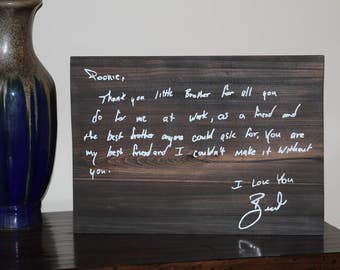 Rookie,
Thank you little Brother for all you
do for me at work, as a friend and
the best brother anyone could ask for, You are
my best friend and I couldn't make it without
you.
I Love You